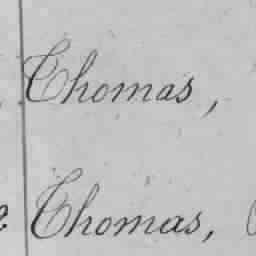 Thomas,
Thomas,